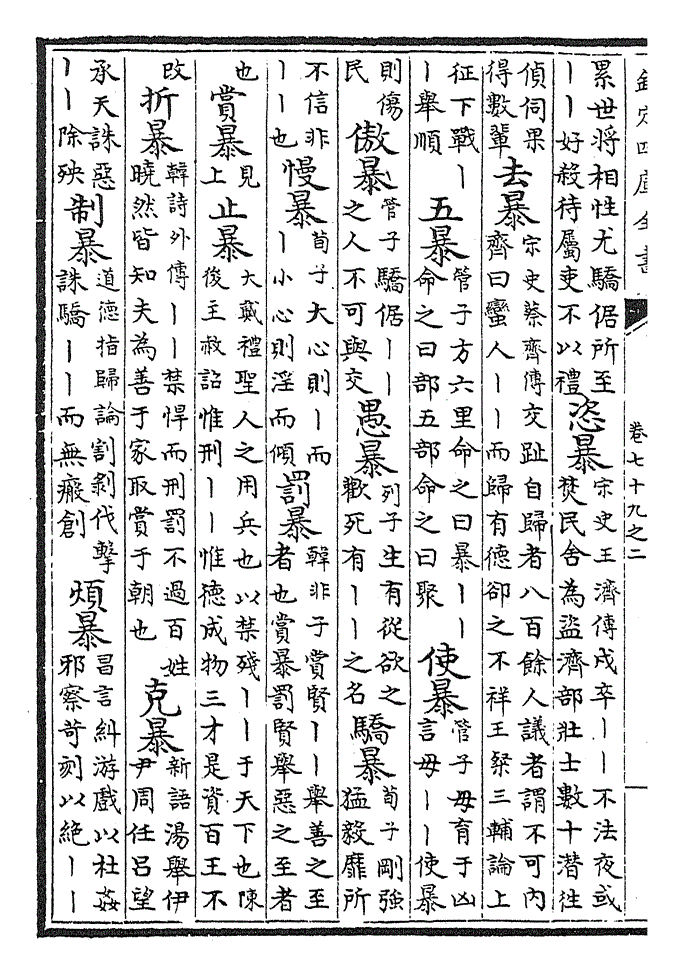 欽定四庫全書
卷七十九之二
累世將相性尤驕倨所至
丨丨好殺待屬吏不以禮
恣暴
宋史王濟傳戍卒丨丨不法夜或
焚民舍為盜濟部壯士數十潛往
偵伺果
得數輩
去暴
宋史蔡齊傳交趾自歸者八百餘人議者謂不可內
齊曰蠻人丨丨而歸有德卻之不祥王粲三輔論上
征下戰丨
丨舉順
五暴
管子方六里命之曰暴丨丨
命之曰部五部命之曰聚
使暴
管子毋育于凶
言毋丨丨使暴
則傷
民
傲暴
管子驕倨丨丨
之人不可與交
愚暴
列子生有從欲之
歡死有丨丨之名
驕暴
荀子剛強
猛毅靡所
不信非
丨丨也
慢暴
荀子大心則丨而
丨小心則淫而傾
罰暴
韓非子賞賢丨丨舉善之至
者也賞暴罰賢舉惡之至者
也
賞暴
見
上
止暴
大戴禮聖人之用兵也以禁殘丨丨于天下也陳
後主赦詔惟刑丨丨惟德成物三才是資百王不
改
折暴
韓詩外傳丨丨禁悍而刑罰不過百姓
曉然皆知夫為善于家取賞于朝也
克暴
新語湯舉伊
尹周任呂望
承天誅惡
丨丨除殃
制暴
道德指歸論割剝伐擊
誅驕丨丨而無瘢創
煩暴
昌言糾游戲以杜姦
邪察苛刻以絕丨丨